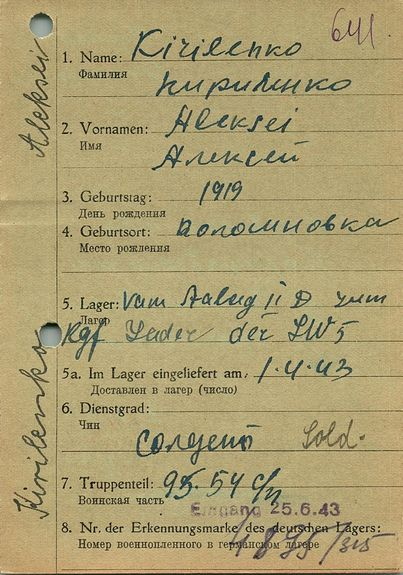 641.
1. Name: Kirilenko
Фамилия
Кириленко
2. Vornamen: Aleksei
Имя
Алексей
3. Geburtstag: 1919
День рождения
4. Geburtsort:
Место рождения
5. Lager: vom
Лагер
Kgf der
5a. Im Lager eingeliefert am 1.4.43
Доставлен в лагер (число)
6. Dienstgrad:
Чин
солдат Sold.
7. Truppenteil: 95.54 с/п
Воинская часть
Eingang 25.6.43
8. Nr. der Erkennungsmarke des deutschen Lagers:
Номер военнопленного в германском лагере
Aleksei
Kirilenko